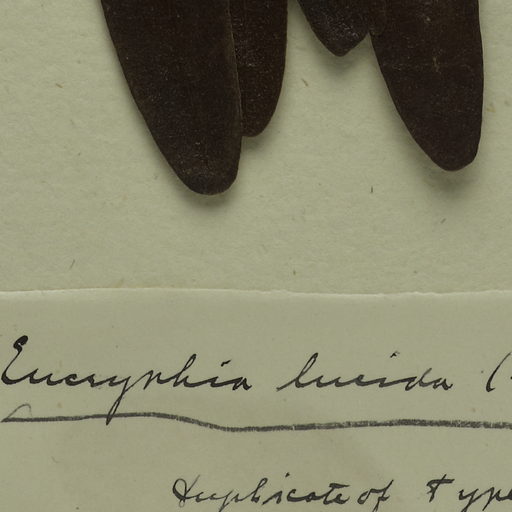 Eucryphia lucida (
Duplicate of type